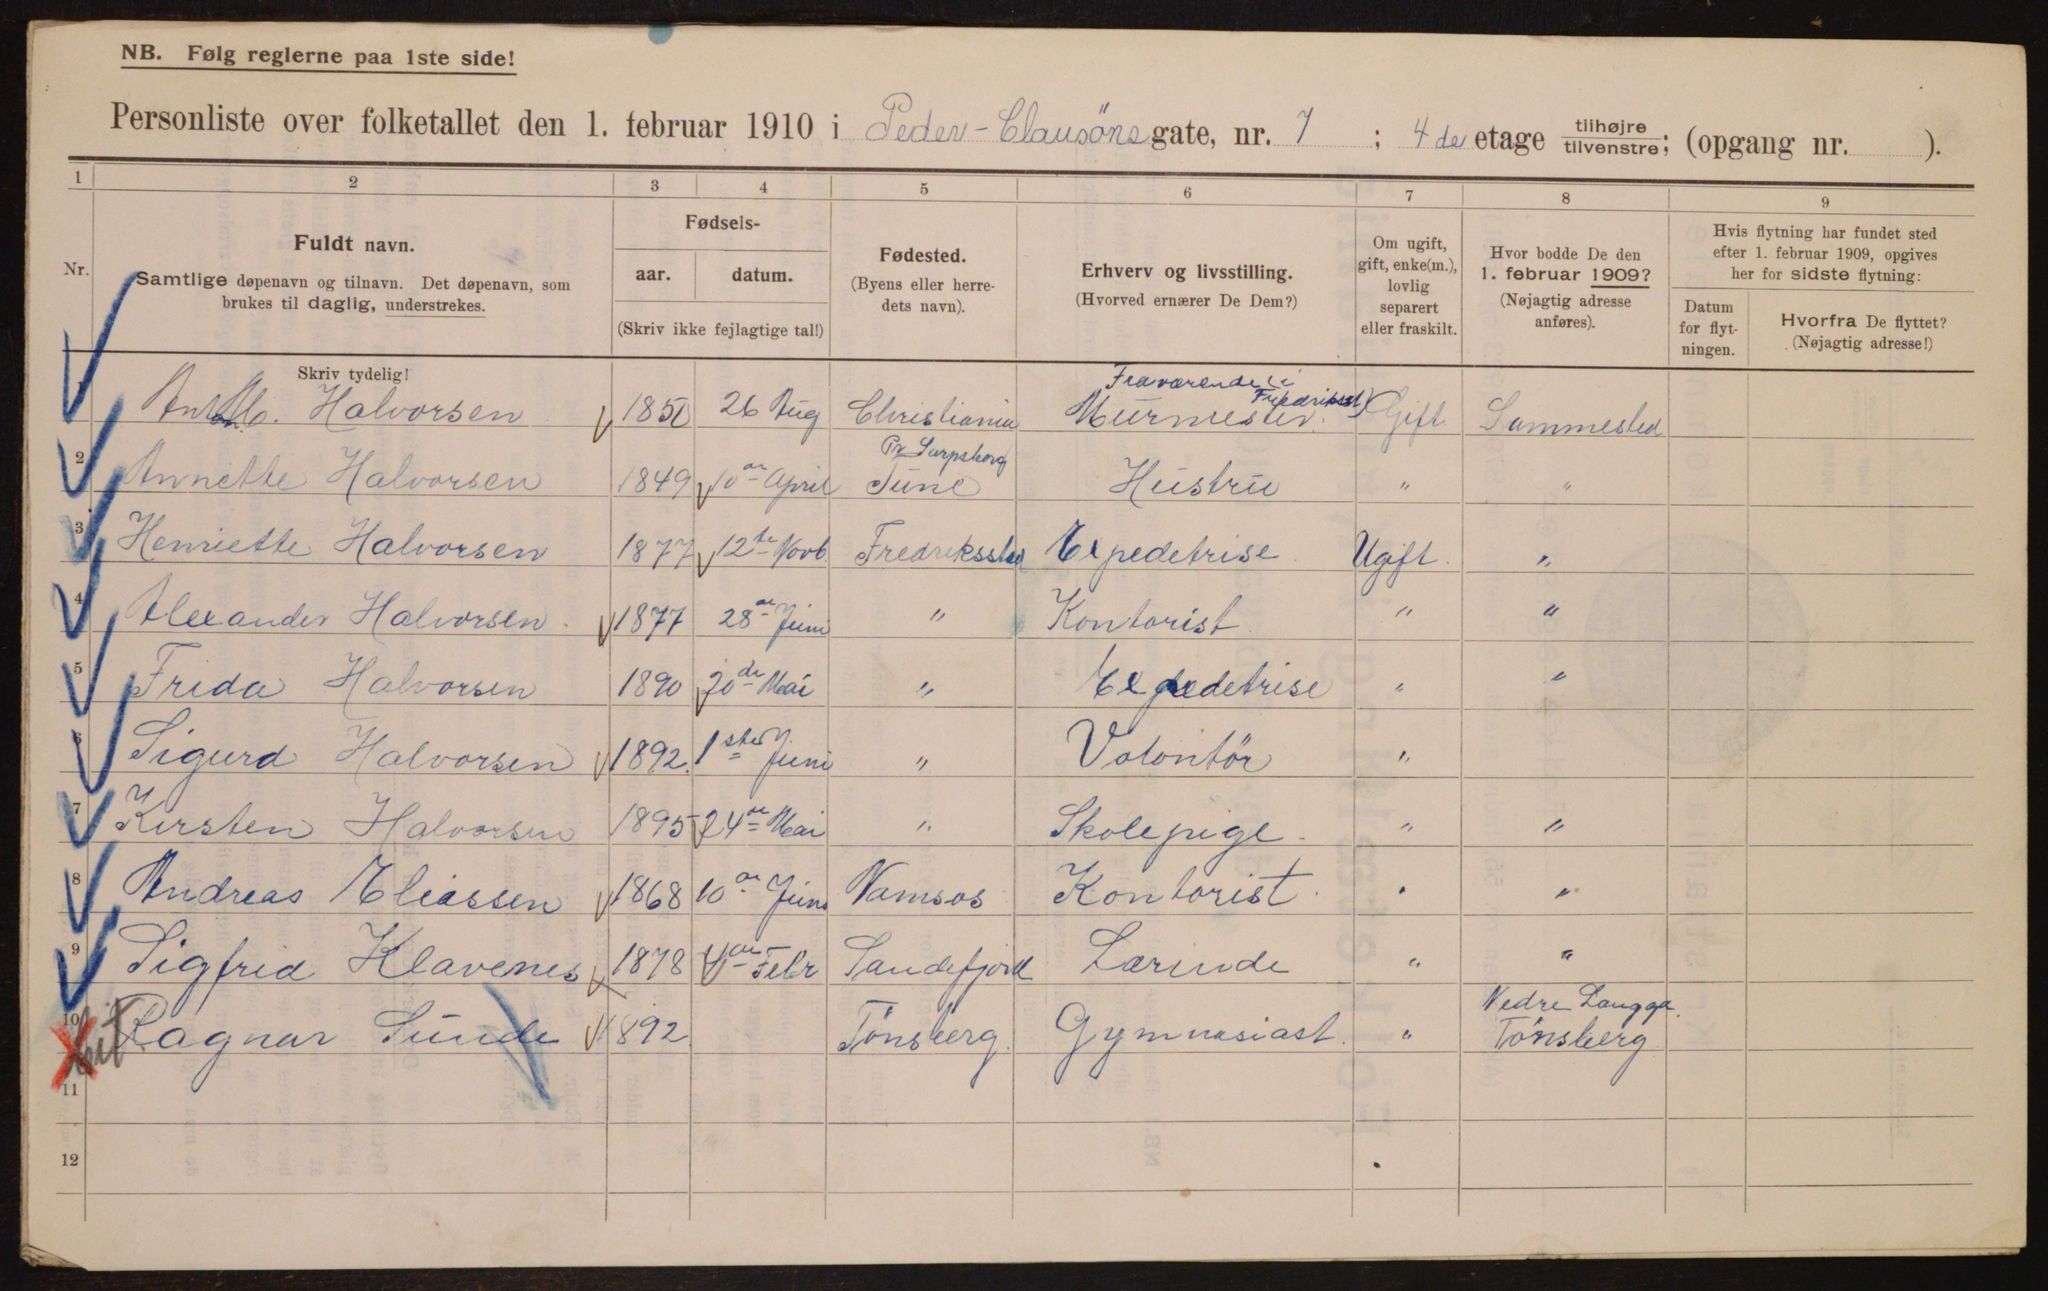 NB. Følg reglerne paa 1ste side!
Personliste over folketallet den 1. februar 1910 i Peder-Clausöns gate, nr. 7 ; 4 de etage tilhøjre tilvenstre; (opgang nr. ).
1 2 3 4 5 6 7 8 9
Nr.
Fuldt navn.
Samtlige døpenavn og tilnavn. Det døpenavn, som
brukes til daglig, understrekes.
Fødsels-
aar. datum.
(Skriv ikke fejlagtige tal!)
Fødested.
(Byens eller herre-
dets navn).
Erhverv og livsstilling.
(Hvorved ernærer De Dem?)
Om ugift,
gift, enke(m.),
lovlig
separert
eller fraskilt.
Hvor bodde De den
1. februar 1909?
(Nøjagtig adresse
anføres).
Hvis flytning har fundet sted
efter 1. februar 1909, opgives
her for sidste flytning:
Datum
for flyt-
ningen.
Hvorfra De flyttet?
(Nøjagtig adresse!)
Skriv tydelig!
Fraværende i
Fredriksst)
1 Halvorsen 1850 26 Aug Christiania Murmester. Gift. Sammested
Pr Sarpsborg
2 Annette Halvorsen 1849 10 April Tune Hustru " "
3 Henriette Halvorsen 1877 12te Novb. Fredriksstad Expedetrise Ugift. "
4 Alexander Halvorsen. 1877 28 Juni " Kontorist " "
5 Frida Halvorsen 1890 20de Mai " Expedetrise " "
6 Sigurd Halvorsen 1892. 1ste Juni " Volontör "
7 Kirsten Halvorsen 1895 24 Mai " Skolepige " "
8 Andreas Eliassen 1868 10 Juni Namsos Kontorist. " "
9 Sigfrid Klavenes 1878 4 Febr Sandefjord Lærinde " "
Nedre Langga.
10 Ragnar Sunde 1892 Tönsberg. Gymnasiast. " Tönsberg
11
12